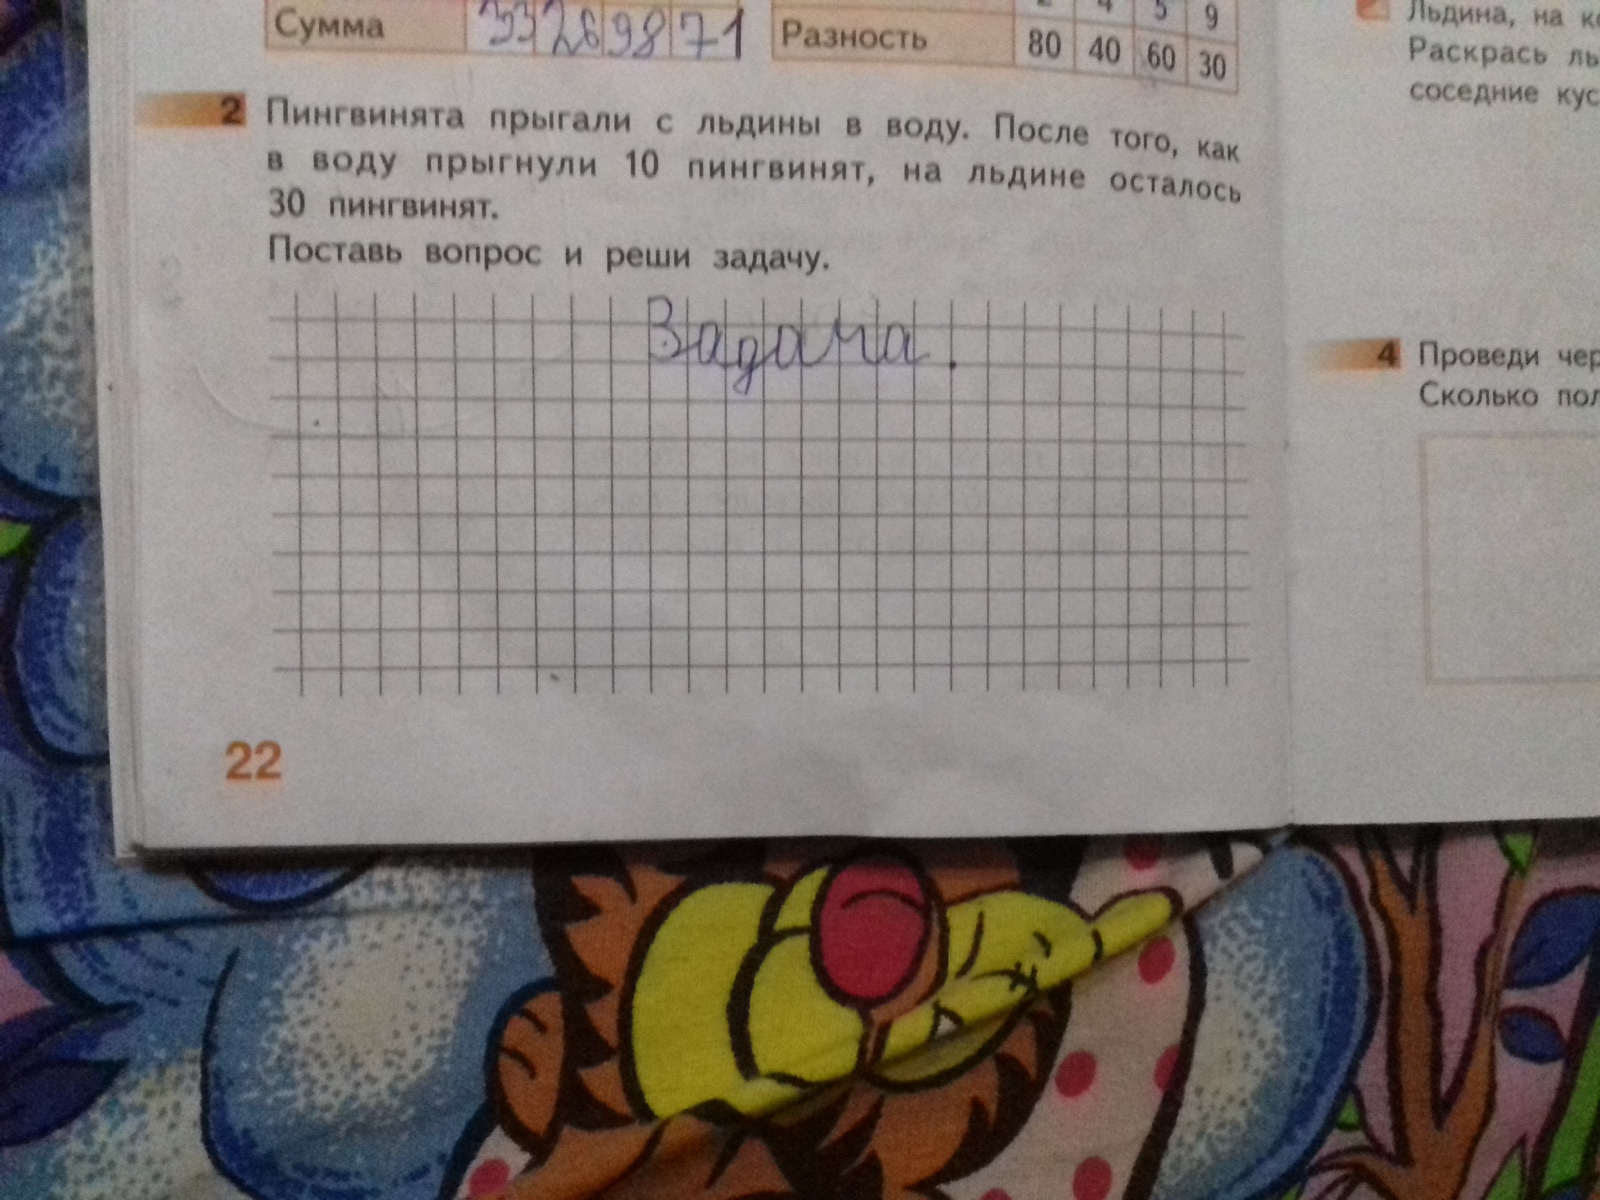 Сумма 33 26 98 71
Разность 80 40 60 30
2 Пингвинята прыгали с льдины в воду. После того, как
в воду прыгнули 10 пингвинят, на льдине осталось
30 пингвинят.
Поставь вопрос и реши задачу.
Задача.
22
Льдина, на
Раскрась
соседние
4 Проведи
Сколько